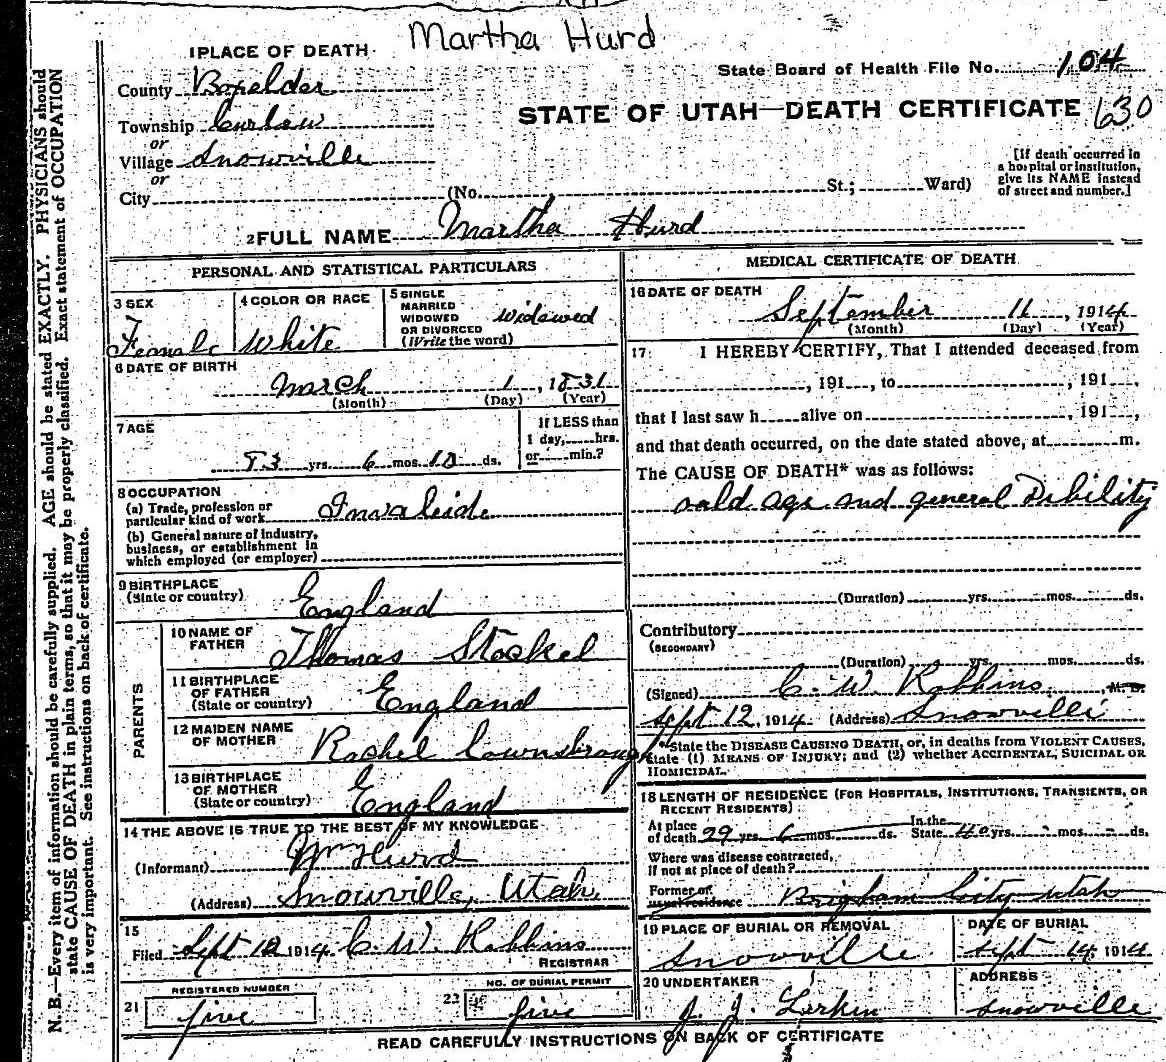 Martha Hurd
1 PLACE OF DEATH
State Board of Health File No. 104
County Boxelder
STATE OF UTAH—DEATH CERTIFICATE 630
Township Curlew
or
Village Snowville
or
City (No. St.; Ward)
[If death occurred in
a hospital or institution,
give its NAME instead
of street and number.]
2 FULL NAME Martha Hurd
PERSONAL AND STATISTICAL PARTICULARS
3 SEX
Female
4 COLOR OR RACE
White
5 SINGLE
MARRIED
WIDOWED
OR DIVORCED
(Write the word)
widowed
6 DATE OF BIRTH
March 1, 1831
(Month) (Day) (Year)
7 AGE
83 yrs. 6 mos. 10 ds.
If LESS than
1 day, hrs.
or min.?
8 OCCUPATION
(a) Trade, profession or
particular kind of work Invaleide
(b) General nature of industry,
business, or establishment in
which employed (or employer)
9 BIRTHPLACE
(State or country) England
PARENTS
10 NAME OF
FATHER Thomas Stockel
11 BIRTHPLACE
OF FATHER
(State or country) England
12 MAIDEN NAME
OF MOTHER Rachel
13 BIRTHPLACE
OF MOTHER
(State or country) England
14 THE ABOVE IS TRUE TO THE BEST OF MY KNOWLEDGE
(Informant) Wm Hurd
(Address) Snowville, Utah
15
Filed Sept 12 1914 C. W. Robbins
REGISTRAR
21 REGISTERED NUMBER
five
22 NO. OF BURIAL PERMIT
five
MEDICAL CERTIFICATE OF DEATH
16 DATE OF DEATH
September 11, 1914
(Month) (Day) (Year)
17. I HEREBY CERTIFY, That I attended deceased from
, 191 , to , 191 ,
that I last saw h alive on , 191 ,
and that death occurred, on the date stated above, at m.
The CAUSE OF DEATH* was as follows:
oald age and general Dibility
(Duration) yrs. mos. ds.
Contributory
(SECONDARY)
(Duration) yrs. mos. ds.
(Signed) C. W. Robbins, M. D.
Sept 12, 1914 (Address) Snowville
*State the DISEASE CAUSING DEATH, or, in deaths from VIOLENT CAUSES,
state (1) MEANS OF INJURY; and (2) whether ACCIDENTAL, SUICIDAL OR
HOMICIDAL.
18 LENGTH OF RESIDENCE (FOR HOSPITALS, INSTITUTIONS, TRANSIENTS, OR
RECENT RESIDENTS)
At place
of death 29 yrs 6 mos. ds. In the
State 40 yrs. mos. ds.
Where was disease contracted,
if not at place of death?
Former or
usual residence Brigham City Utah
19 PLACE OF BURIAL OR REMOVAL
Snowville
DATE OF BURIAL
Sept 14, 1914
20 UNDERTAKER
J. J. Larkin
ADDRESS
Snowville
READ CAREFULLY INSTRUCTIONS ON BACK OF CERTIFICATE
N. B.—Every item of information should be carefully supplied. AGE should be stated EXACTLY. PHYSICIANS should
state CAUSE OF DEATH in plain terms, so that it may be properly classified. Exact statement of OCCUPATION
is very important. See instructions on back of certificate.